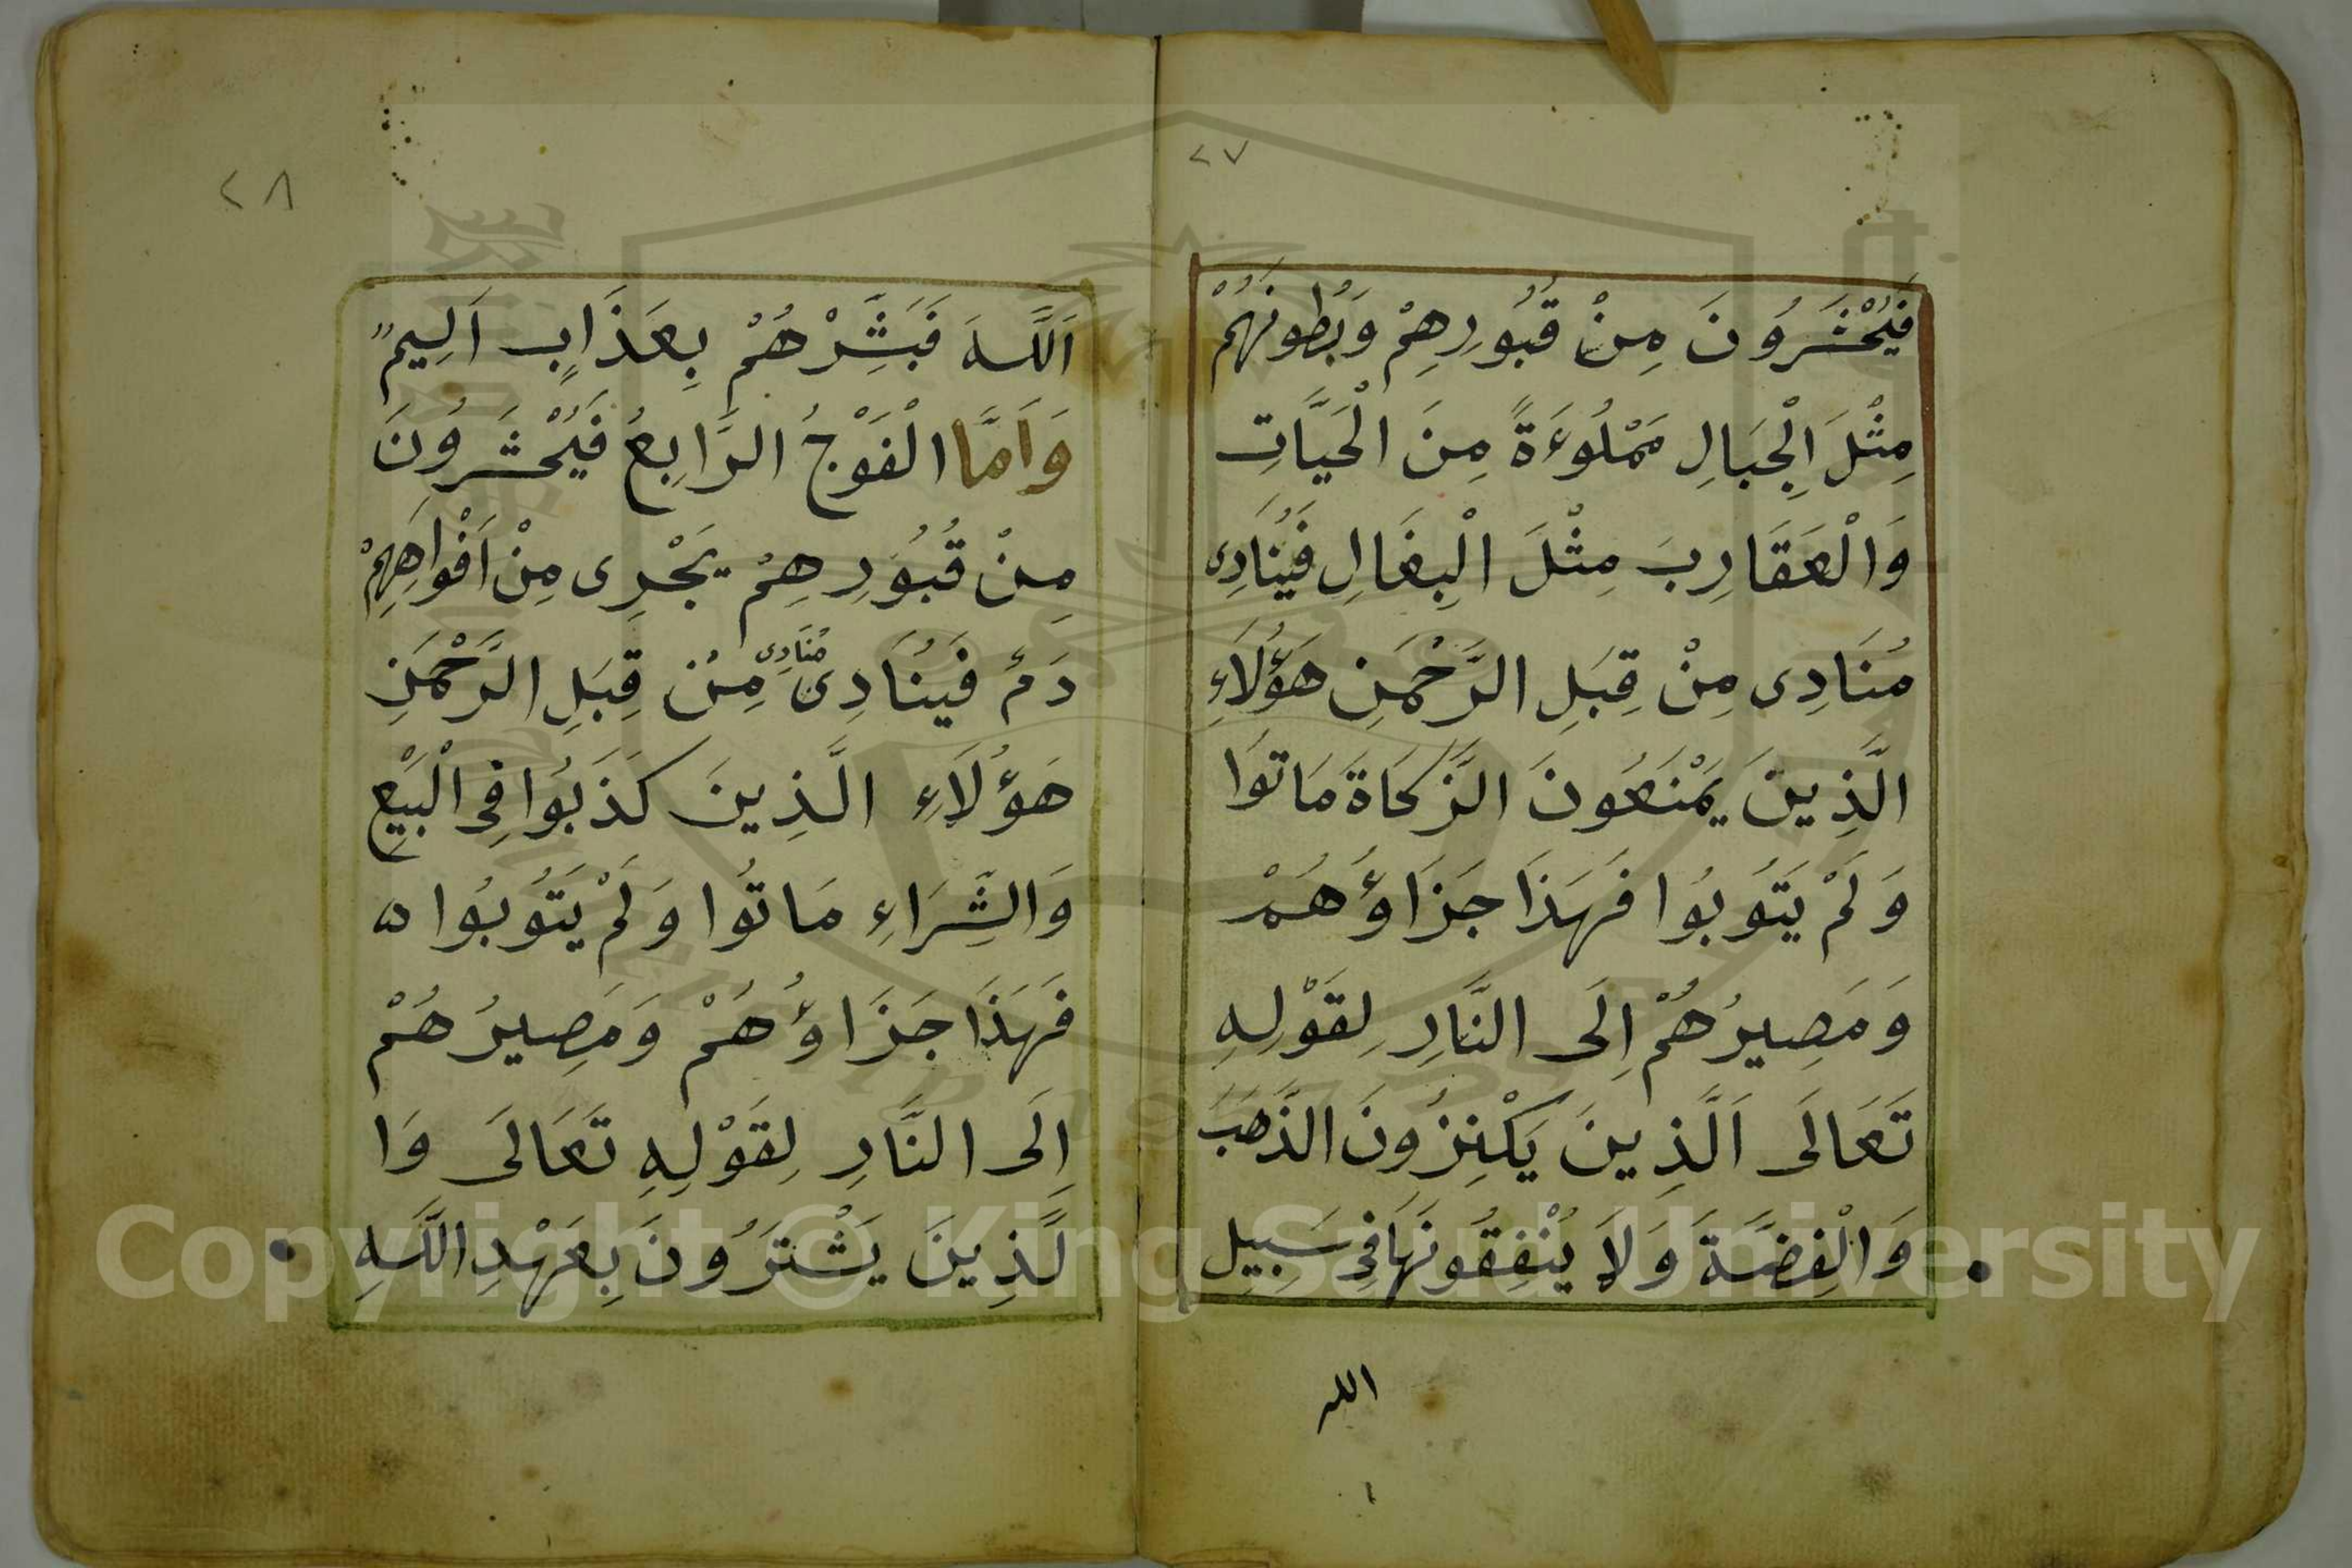 ٢٧
فَيُحْشَرُونَ مِنْ قُبُورِهِمْ وَبُطُونَهُمْ
مِثْلَ الْجِبَالِ مَمْلُوءَةً مِنَ الْحَيَّاتِ
وَالْعَقَارِبَ مِثْلَ الْبِغَالِ فَيُنَادِى
مُنَادِى مِنْ قِبَلِ الرَّحْمَنِ هَؤُلَاءِ
الَّذِينَ يَمْنَعُونَ الزَّكَاةَ مَاتُوا
وَلَمْ يَتُوبُوا فَهَذَا جَزَاؤُهُمْ
وَمَصِيرُهُمْ اِلَى النَّارِ لِقَوْلِهِ
تَعَالَى اَلَّذِينَ يَكْنِزُونَ الذَّهَبَ
وَالْفِضَّةَ وَلَا يُنْفِقُونَهَا فِى سَبِيلِ
الله
٢٨
اَللَّهَ فَبَشِّرْهُمْ بِعَذَابٍ اَلِيمٍ
وَاَمَّا الْفَوْجُ الرَّابِعُ فَيُحْشَرُونَ
مِنْ قُبُورِهِمْ يَجْرِى مِنْ اَفْوَاهِهِمْ
دَمٌ فَيُنَادِى مُنَادِى مِنْ قِبَلِ الرَّحْمَنِ
هَؤُلَاءِ الَّذِينَ كَذَبُوا فِى الْبَيْعِ
وَالشِّرَاءِ مَاتُوا وَلَمْ يَتُوبُوا
فَهَذَا جَزَاؤُهُمْ وَمَصِيرُهُمْ
اِلَى النَّارِ لِقَوْلِهِ تَعَالَى وَا
لَّذِينَ يَشْتَرُونَ بِعَهْدِ اللَّهِ
Copyright © King Saud University